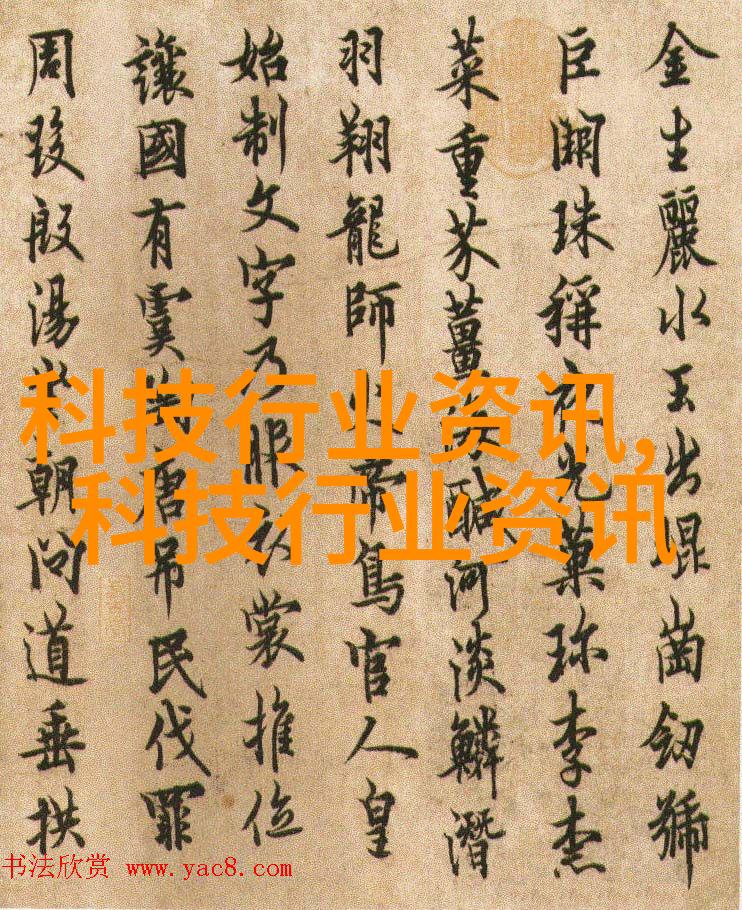 金生麗水玉出崐崗釼號
巨闕珠稱夜光菓珎李柰
菜重芥薑海醎河淡鱗潛
羽翔龍師火帝鳥官人皇
始制文字乃服衣裳推位
讓國有虞陶唐吊民伐罪
周發殷湯坐朝問道垂拱
科技行业资讯,
科技行业资讯
书法欣赏 www.yac8.com